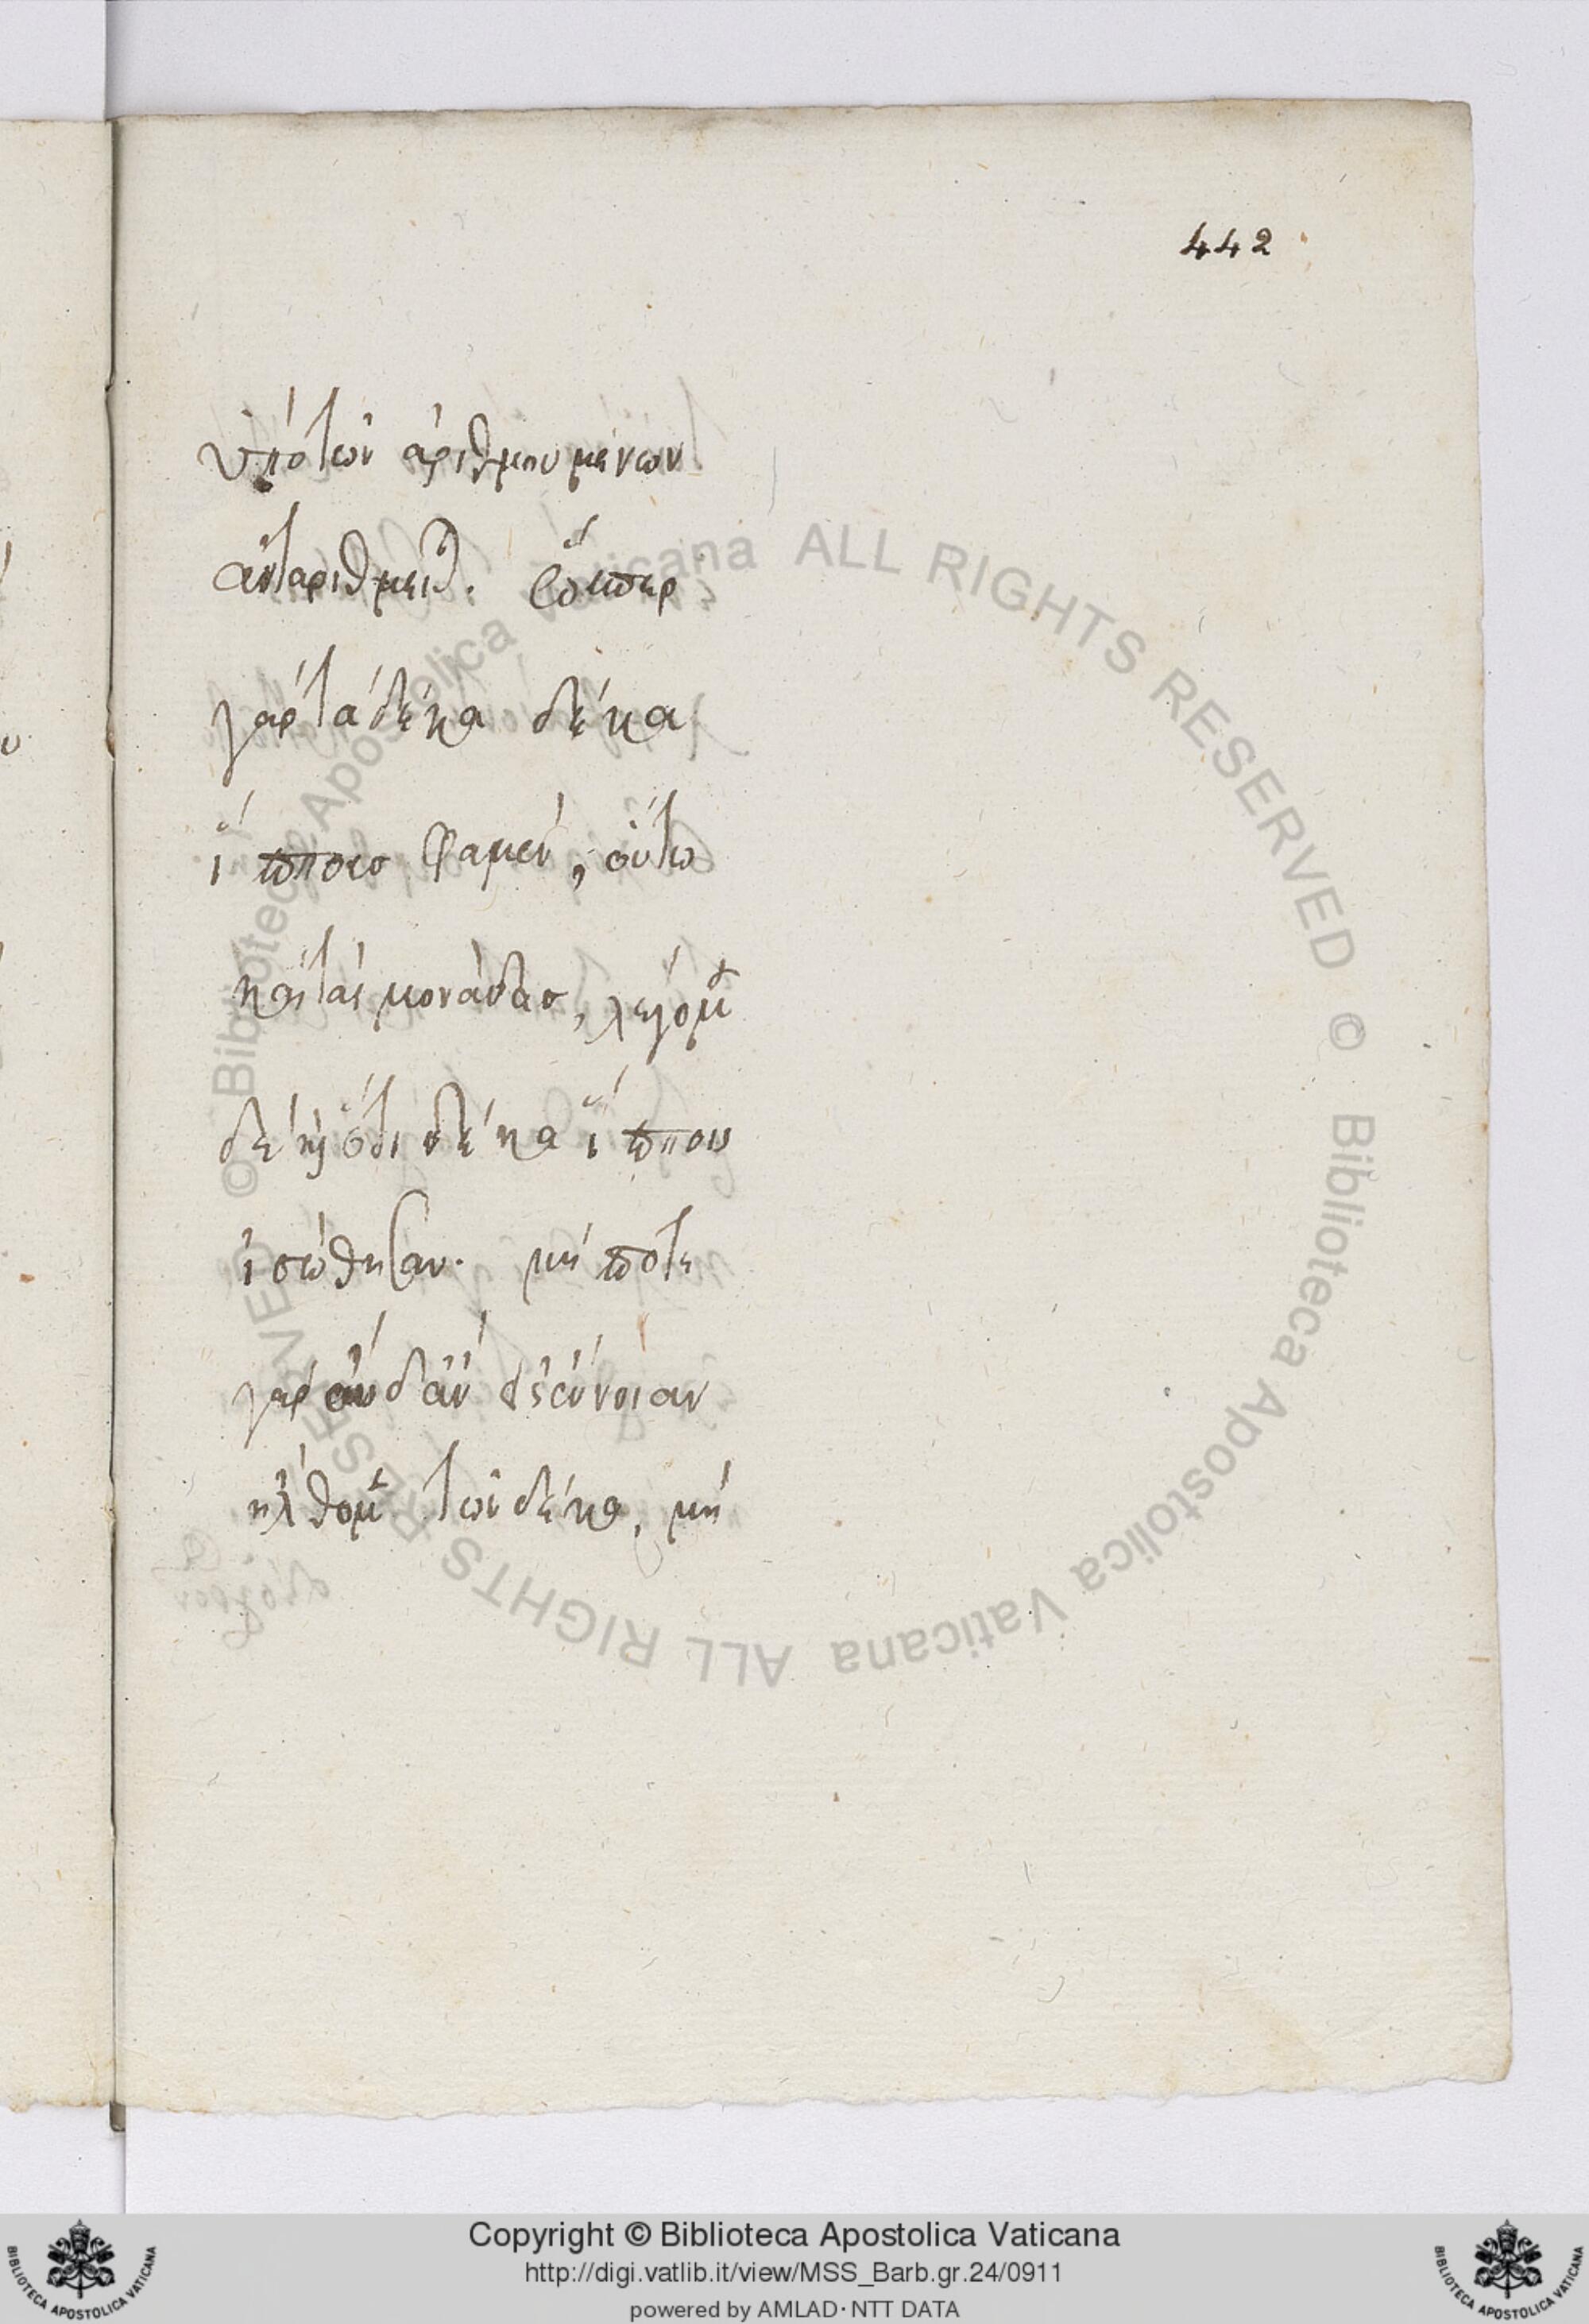 442
ὑπὸ τῶν ἀριθμουμένων
ἀνταριθμεῖται. ὥσπερ
γὰρ τὰ δέκα δέκα
ἵππους φαμὲν, οὕτω
καὶ τὰς μονάδας, λέγομεν
δὲ καὶ ὅτι δέκα ἵπποις
ἰσώθησαν. μήποτε
γὰρ οὐδ᾽ ἂν εἰς ἔννοιαν
ἤλθομεν τῶν δέκα, μὴ
© Biblioteca Apostolica Vaticana ALL RIGHTS RESERVED © Biblioteca Apostolica Vaticana ALL RIGHTS RESERVED
Copyright © Biblioteca Apostolica Vaticana
http://digi.vatlib.it/view/MSS_Barb.gr.24/0911
powered by AMLAD·NTT DATA
BIBLIOTECA APOSTOLICA VATICANA
BIBLIOTECA APOSTOLICA VATICANA